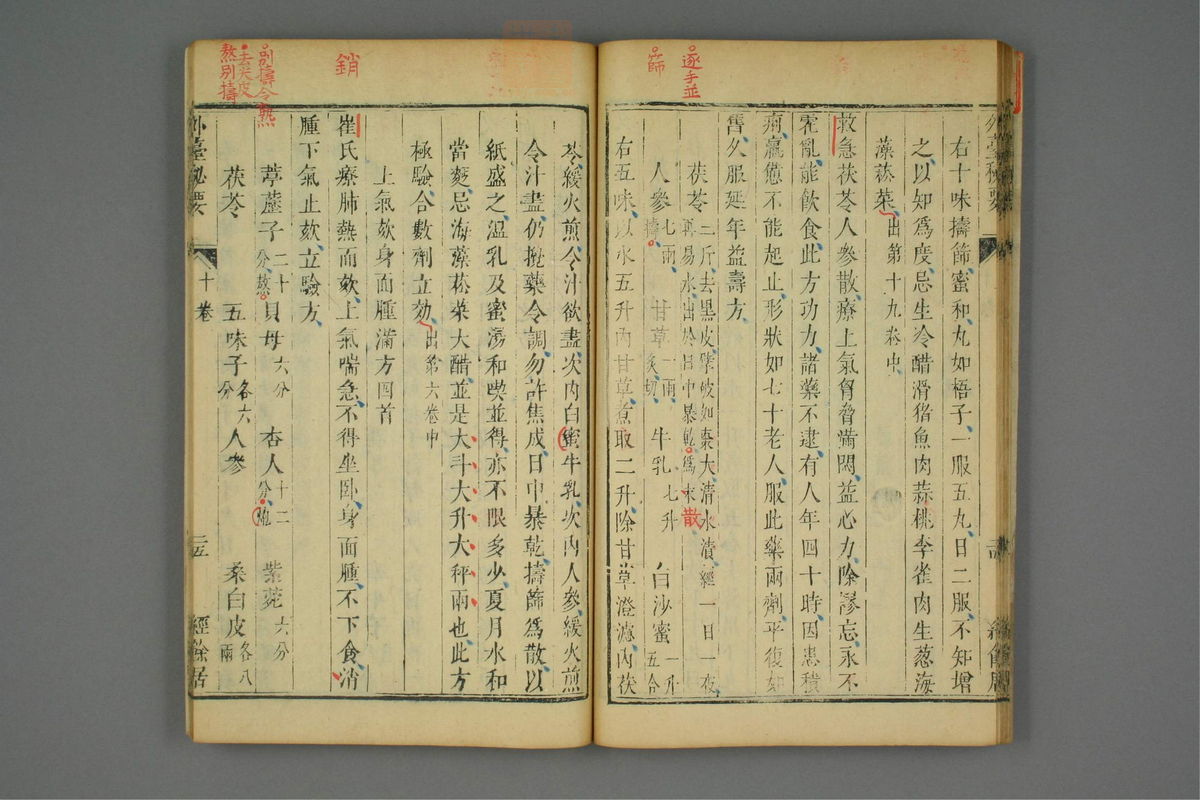 遂手並
篩
右十味擣篩蜜和丸如梧子一服五丸日二服不知增
之以知爲度忌生冷醋滑猪魚肉蒜桃李雀肉生葱海
藻菘菜出第十九卷中
救急茯苓人參散療上氣胷脅滿悶益心力除謬忘永不
霍亂能飲食此方功力諸藥不逮有人年四十時因患積
痢羸憊不能起止形狀如七十老人服此藥兩劑平復如
舊久服延年益壽方
茯苓二斤去黑皮擘破如棗大清水漬經一日一夜再易水出於日中暴乾爲末散
人參七兩擣 甘草一兩炙切 牛乳七升 白沙蜜一升五合
右五味以水五升內甘草煮取二升除甘草澄濾內茯
苓緩火煎令汁欲盡次內白蜜牛乳次內人參緩火煎
令汁盡仍攪藥令調勿許焦成日中暴乾擣篩爲散以
紙盛之溫乳及蜜湯和喫並得亦不限多少夏月水和
當麨忌海藻菘菜大醋並是大斗大升大秤兩也此方
極驗合數劑立効出第六卷中
上氣欬身面腫滿方四首
銷
崔氏療肺熱而欬上氣喘急不得坐卧身面腫不下食消
腫下氣止欬立驗方
別擣令熟
去尖皮
熬別擣
葶藶子二十分熬 貝母六分 杏人十二分 紫菀六分
茯苓 五味子各六分 人參 桑白皮各八兩
外臺祕要 十卷 二五 經餘居